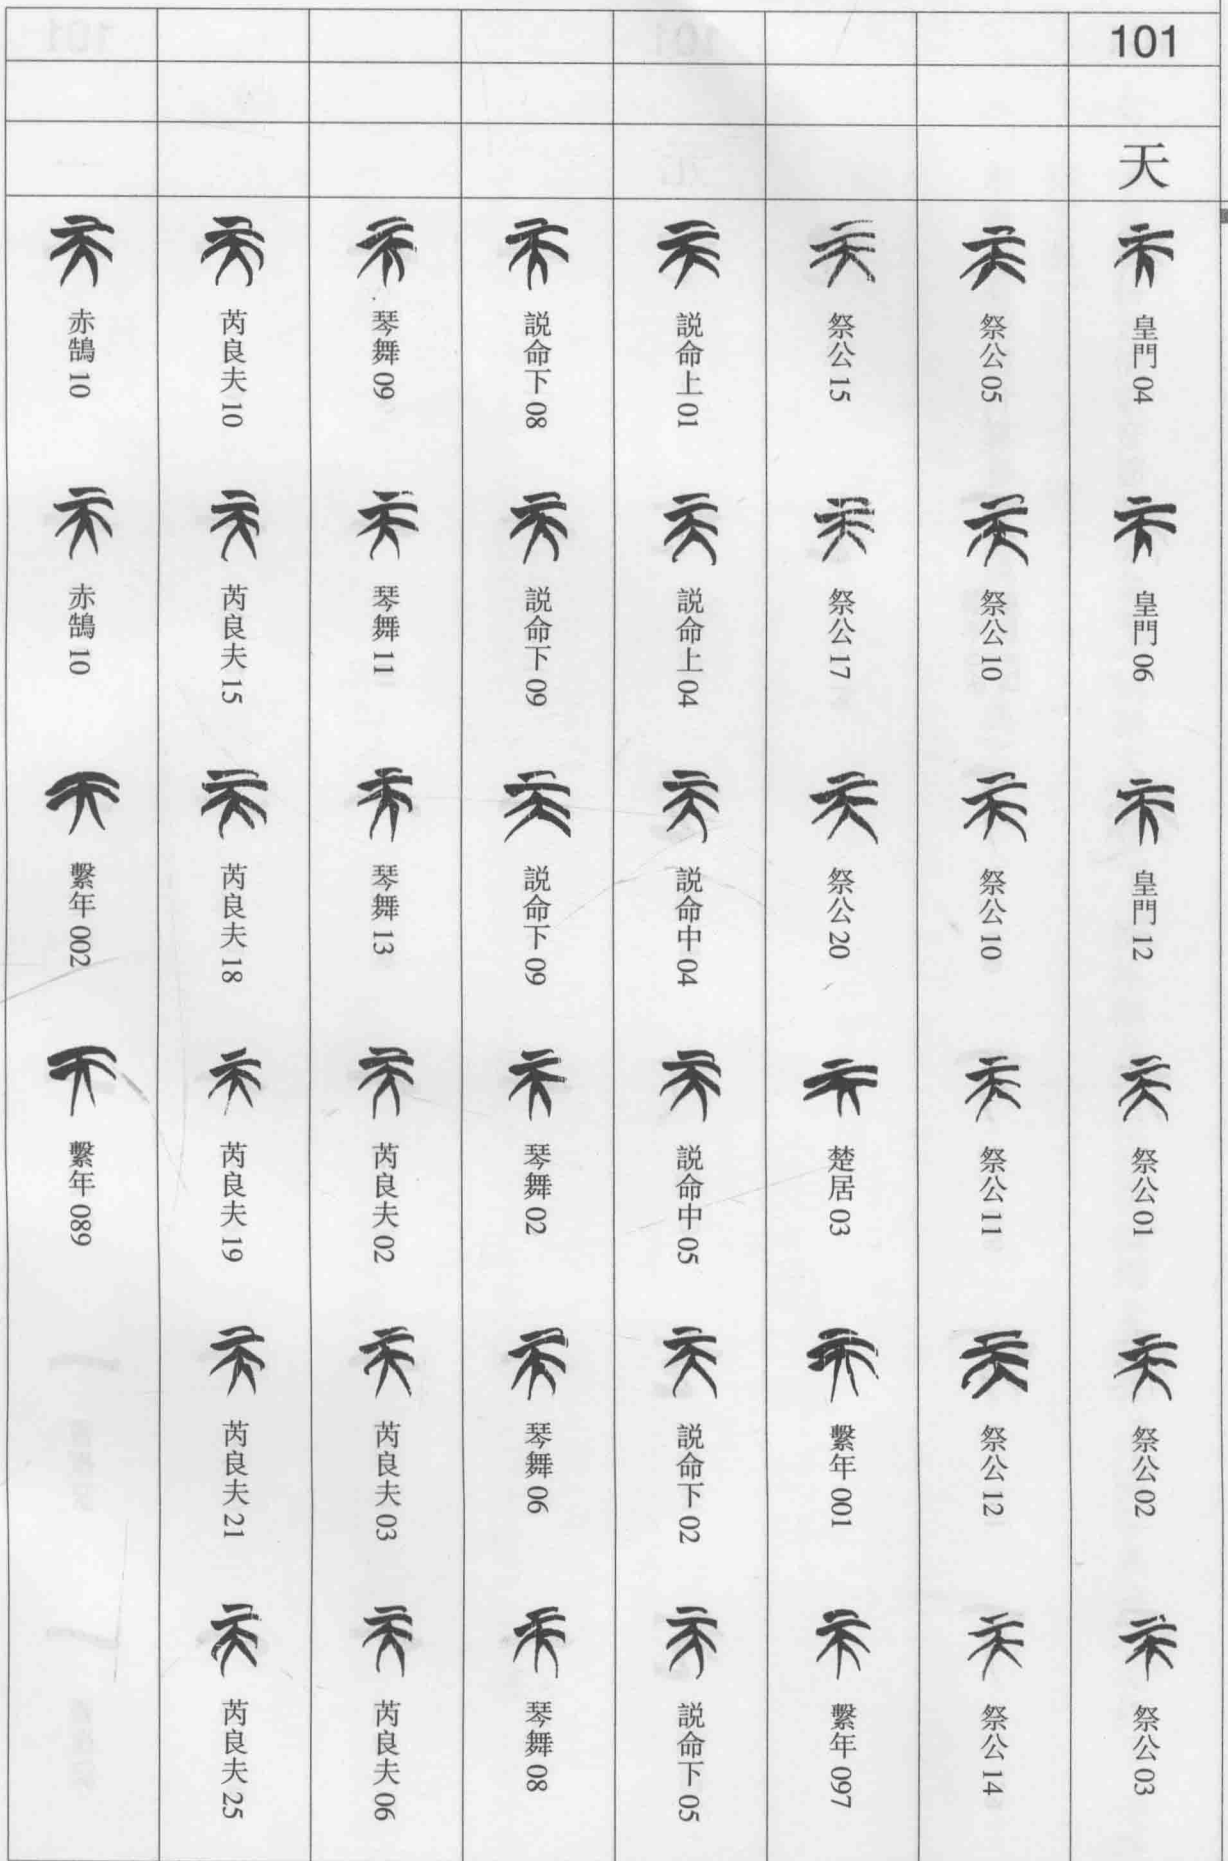 101
天
皇門 04
皇門 06
皇門 12
祭公 01
祭公 02
祭公 03
祭公 05
祭公 10
祭公 10
祭公 11
祭公 12
祭公 14
祭公 15
祭公 17
祭公 20
楚居 03
繫年 001
繫年 097
説命上 01
説命上 04
説命中 04
説命中 05
説命下 02
説命下 05
説命下 08
説命下 09
説命下 09
琴舞 02
琴舞 06
琴舞 08
琴舞 09
琴舞 11
琴舞 13
芮良夫 02
芮良夫 03
芮良夫 06
芮良夫 10
芮良夫 15
芮良夫 18
芮良夫 19
芮良夫 21
芮良夫 25
赤鵠 10
赤鵠 10
繫年 002
繫年 089